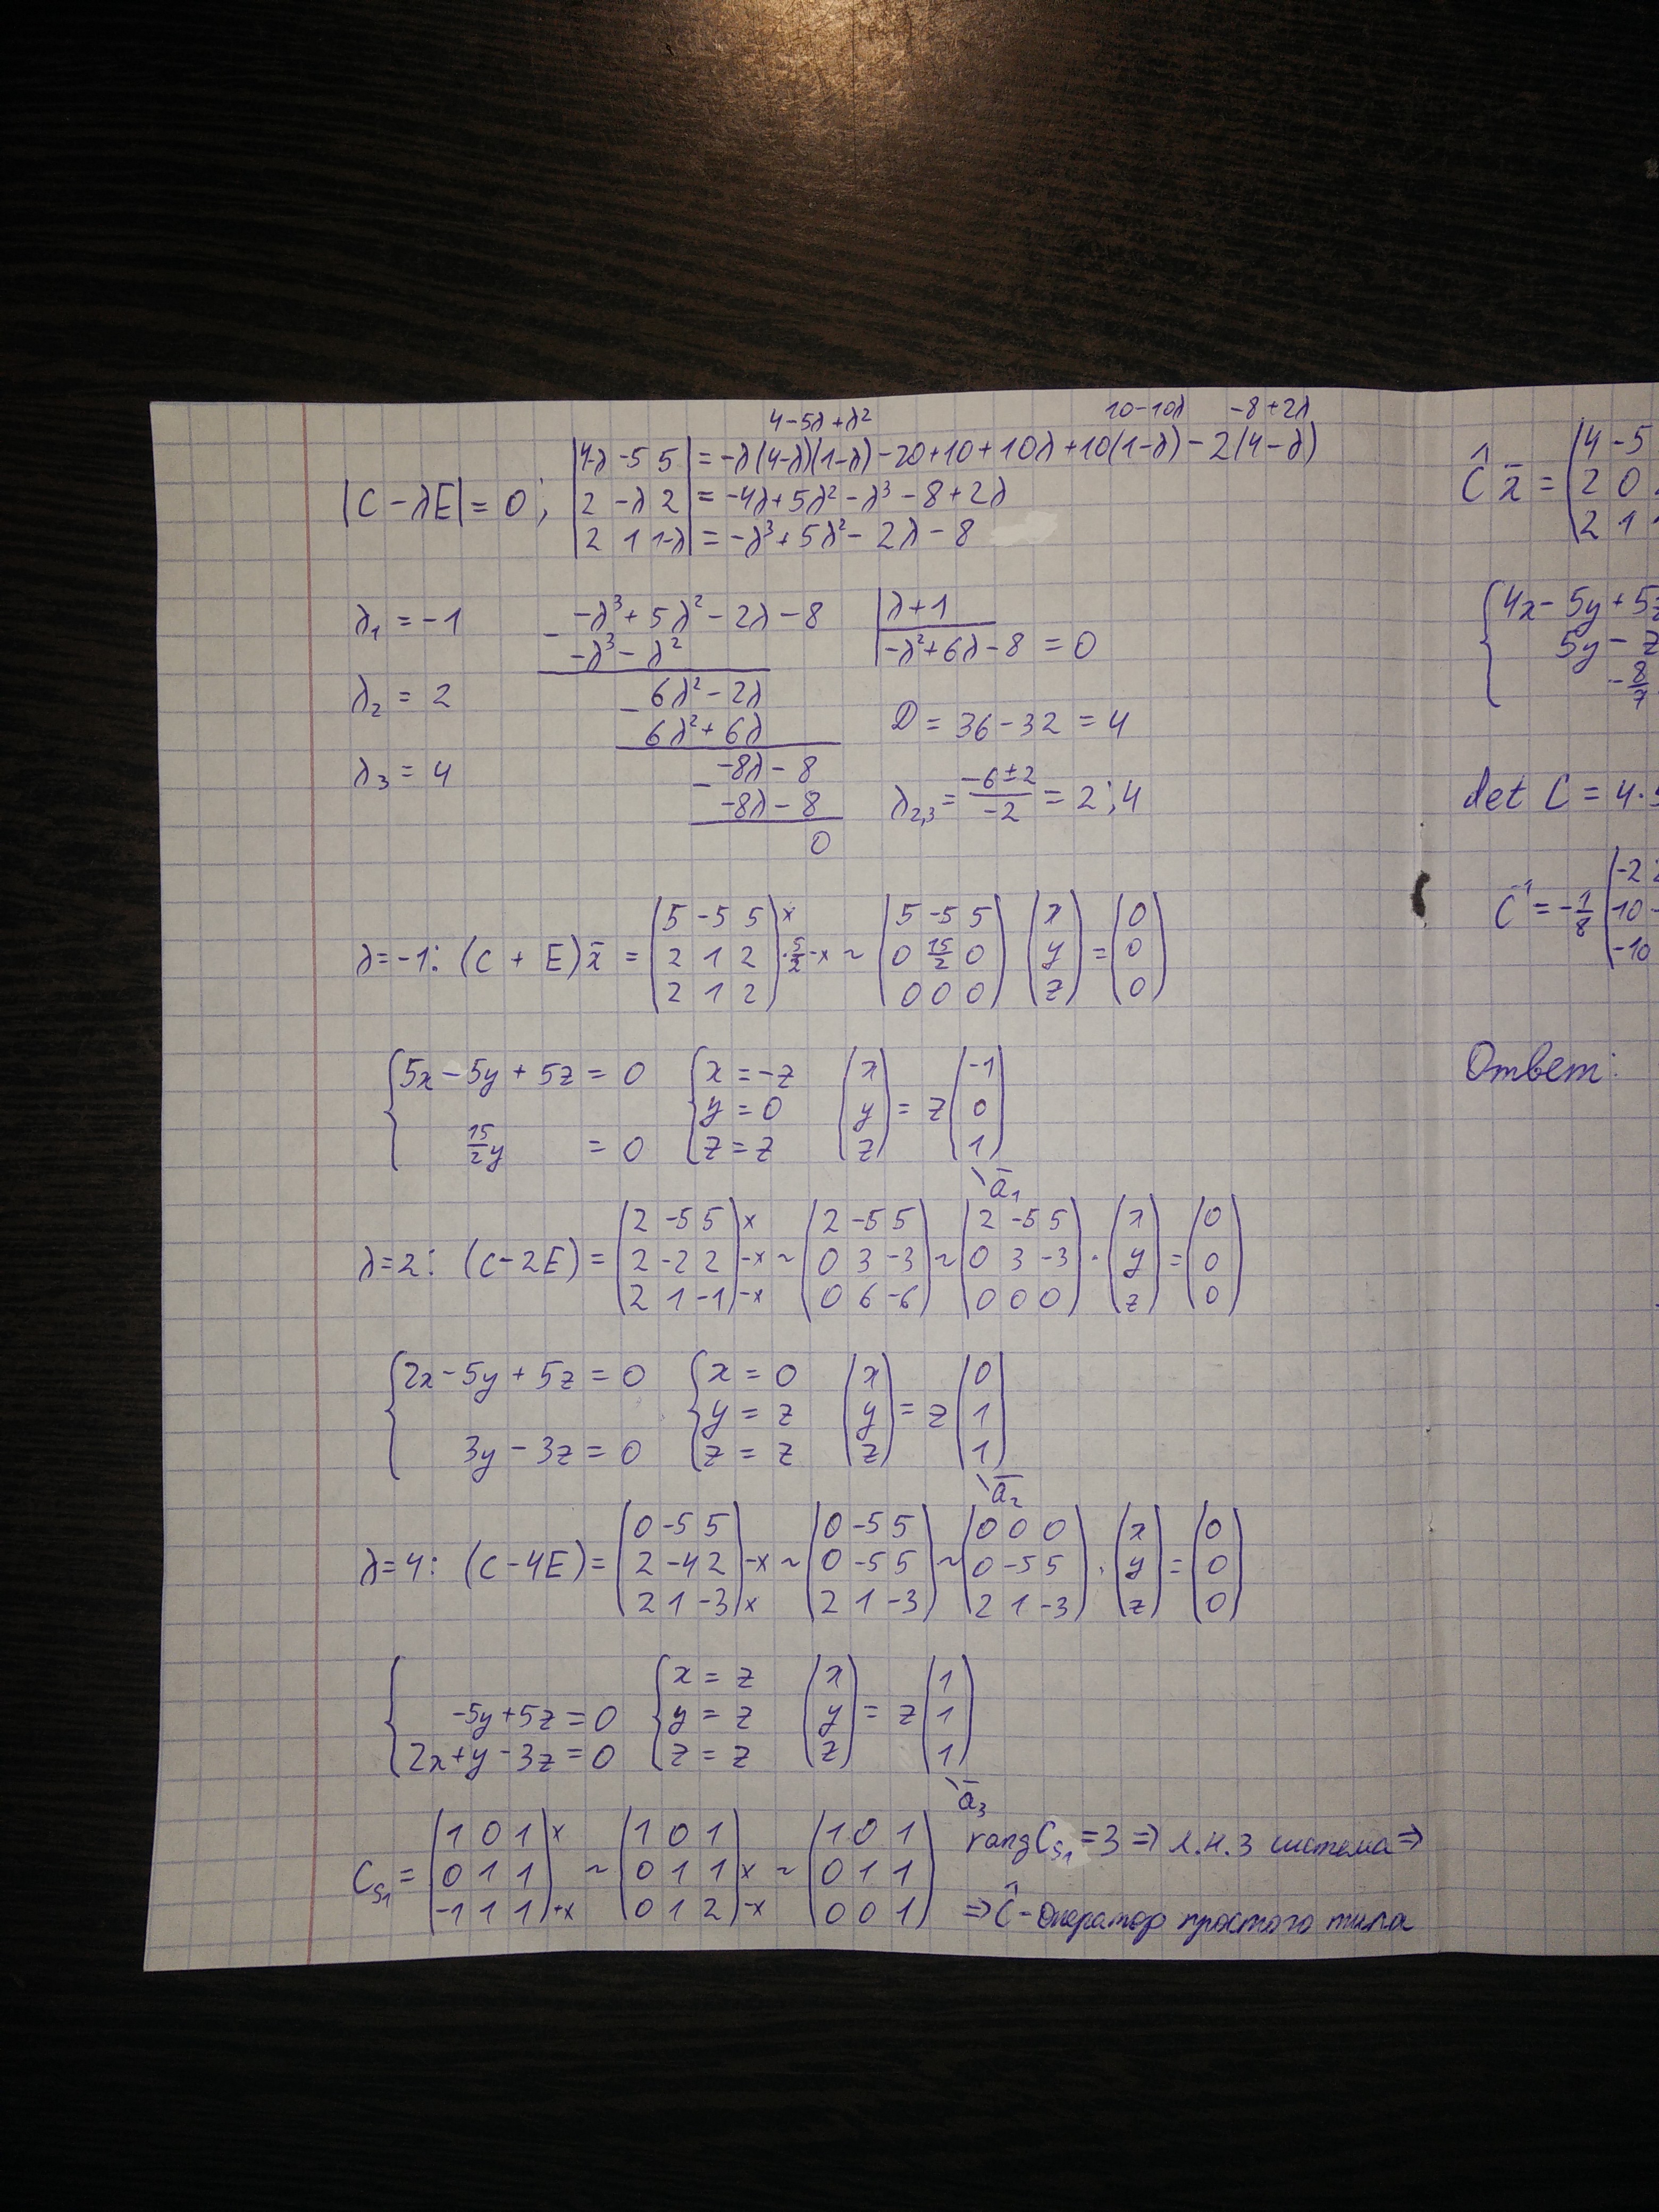 4-5λ+λ² 10-10λ -8+2λ
|C-λE|=0; |4-λ -5 5| = -λ(4-λ)(1-λ)-20+10+10λ+10(1-λ)-2(4-λ)
|2 -λ 2| = -4λ+5λ²-λ³-8+2λ
|2 1 1-λ| = -λ³+5λ²-2λ-8
λ₁ = -1
λ₂ = 2
λ₃ = 4
-λ³+5λ²-2λ-8 |λ+1
-λ³-λ² -λ²+6λ-8 = 0
6λ²-2λ
6λ²+6λ
-8λ-8
-8λ-8
0
D = 36-32 = 4
λ₂,₃ = (-6±2)/(-2) = 2;4
λ=-1: (C + E)x̄ = (5 -5 5; 2 1 2; 2 1 2) x ·5/2-x ~ (5 -5 5; 0 15/2 0; 0 0 0) (x; y; z) = (0; 0; 0)
{5x-5y+5z = 0 {x = -z (x; y; z) = z(-1; 0; 1)
y = 0
15/2 y = 0 z = z
ā₁
λ=2: (C-2E) = (2 -5 5; 2 -2 2; 2 1 -1) x -x -x ~ (2 -5 5; 0 3 -3; 0 6 -6) ~ (2 -5 5; 0 3 -3; 0 0 0) · (x; y; z) = (0; 0; 0)
{2x-5y+5z = 0 {x = 0 (x; y; z) = z(0; 1; 1)
y = z
3y-3z = 0 z = z
ā₂
λ=4: (C-4E) = (0 -5 5; 2 -4 2; 2 1 -3) -x x ~ (0 -5 5; 0 -5 5; 2 1 -3) ~ (0 0 0; 0 -5 5; 2 1 -3) · (x; y; z) = (0; 0; 0)
{ {x = z (x; y; z) = z(1; 1; 1)
-5y+5z = 0 y = z
2x+y-3z = 0 z = z
ā₃
C_S₁ = (1 0 1; 0 1 1; -1 1 1) x +x ~ (1 0 1; 0 1 1; 0 1 2) x -x ~ (1 0 1; 0 1 1; 0 0 1) rang C_S₁ = 3 ⇒ л.н.з система ⇒
⇒ Ĉ - оператор простого типа
Ĉ x̄ = |4 -5
2 0
2 1
{4x-5y+5z
5y-z
-8/7
det C = 4·5
C⁻¹ = -1/8 |-2 2
10 -
-10
Ответ: